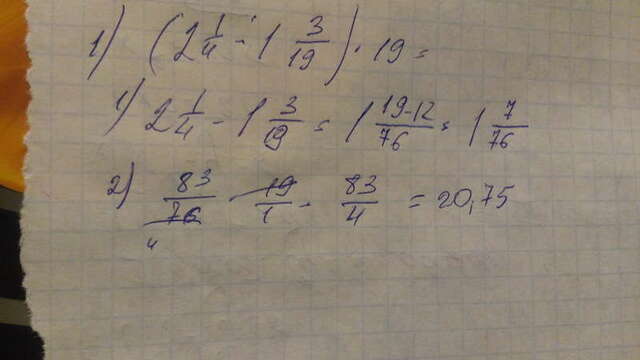 1) (2 1/4 - 1 3/19) · 19 =
1) 2 1/4 - 1 3/19 = 1 19-12/76 = 1 7/76
2) 83/76 · 19/1 = 83/4 = 20,75
4